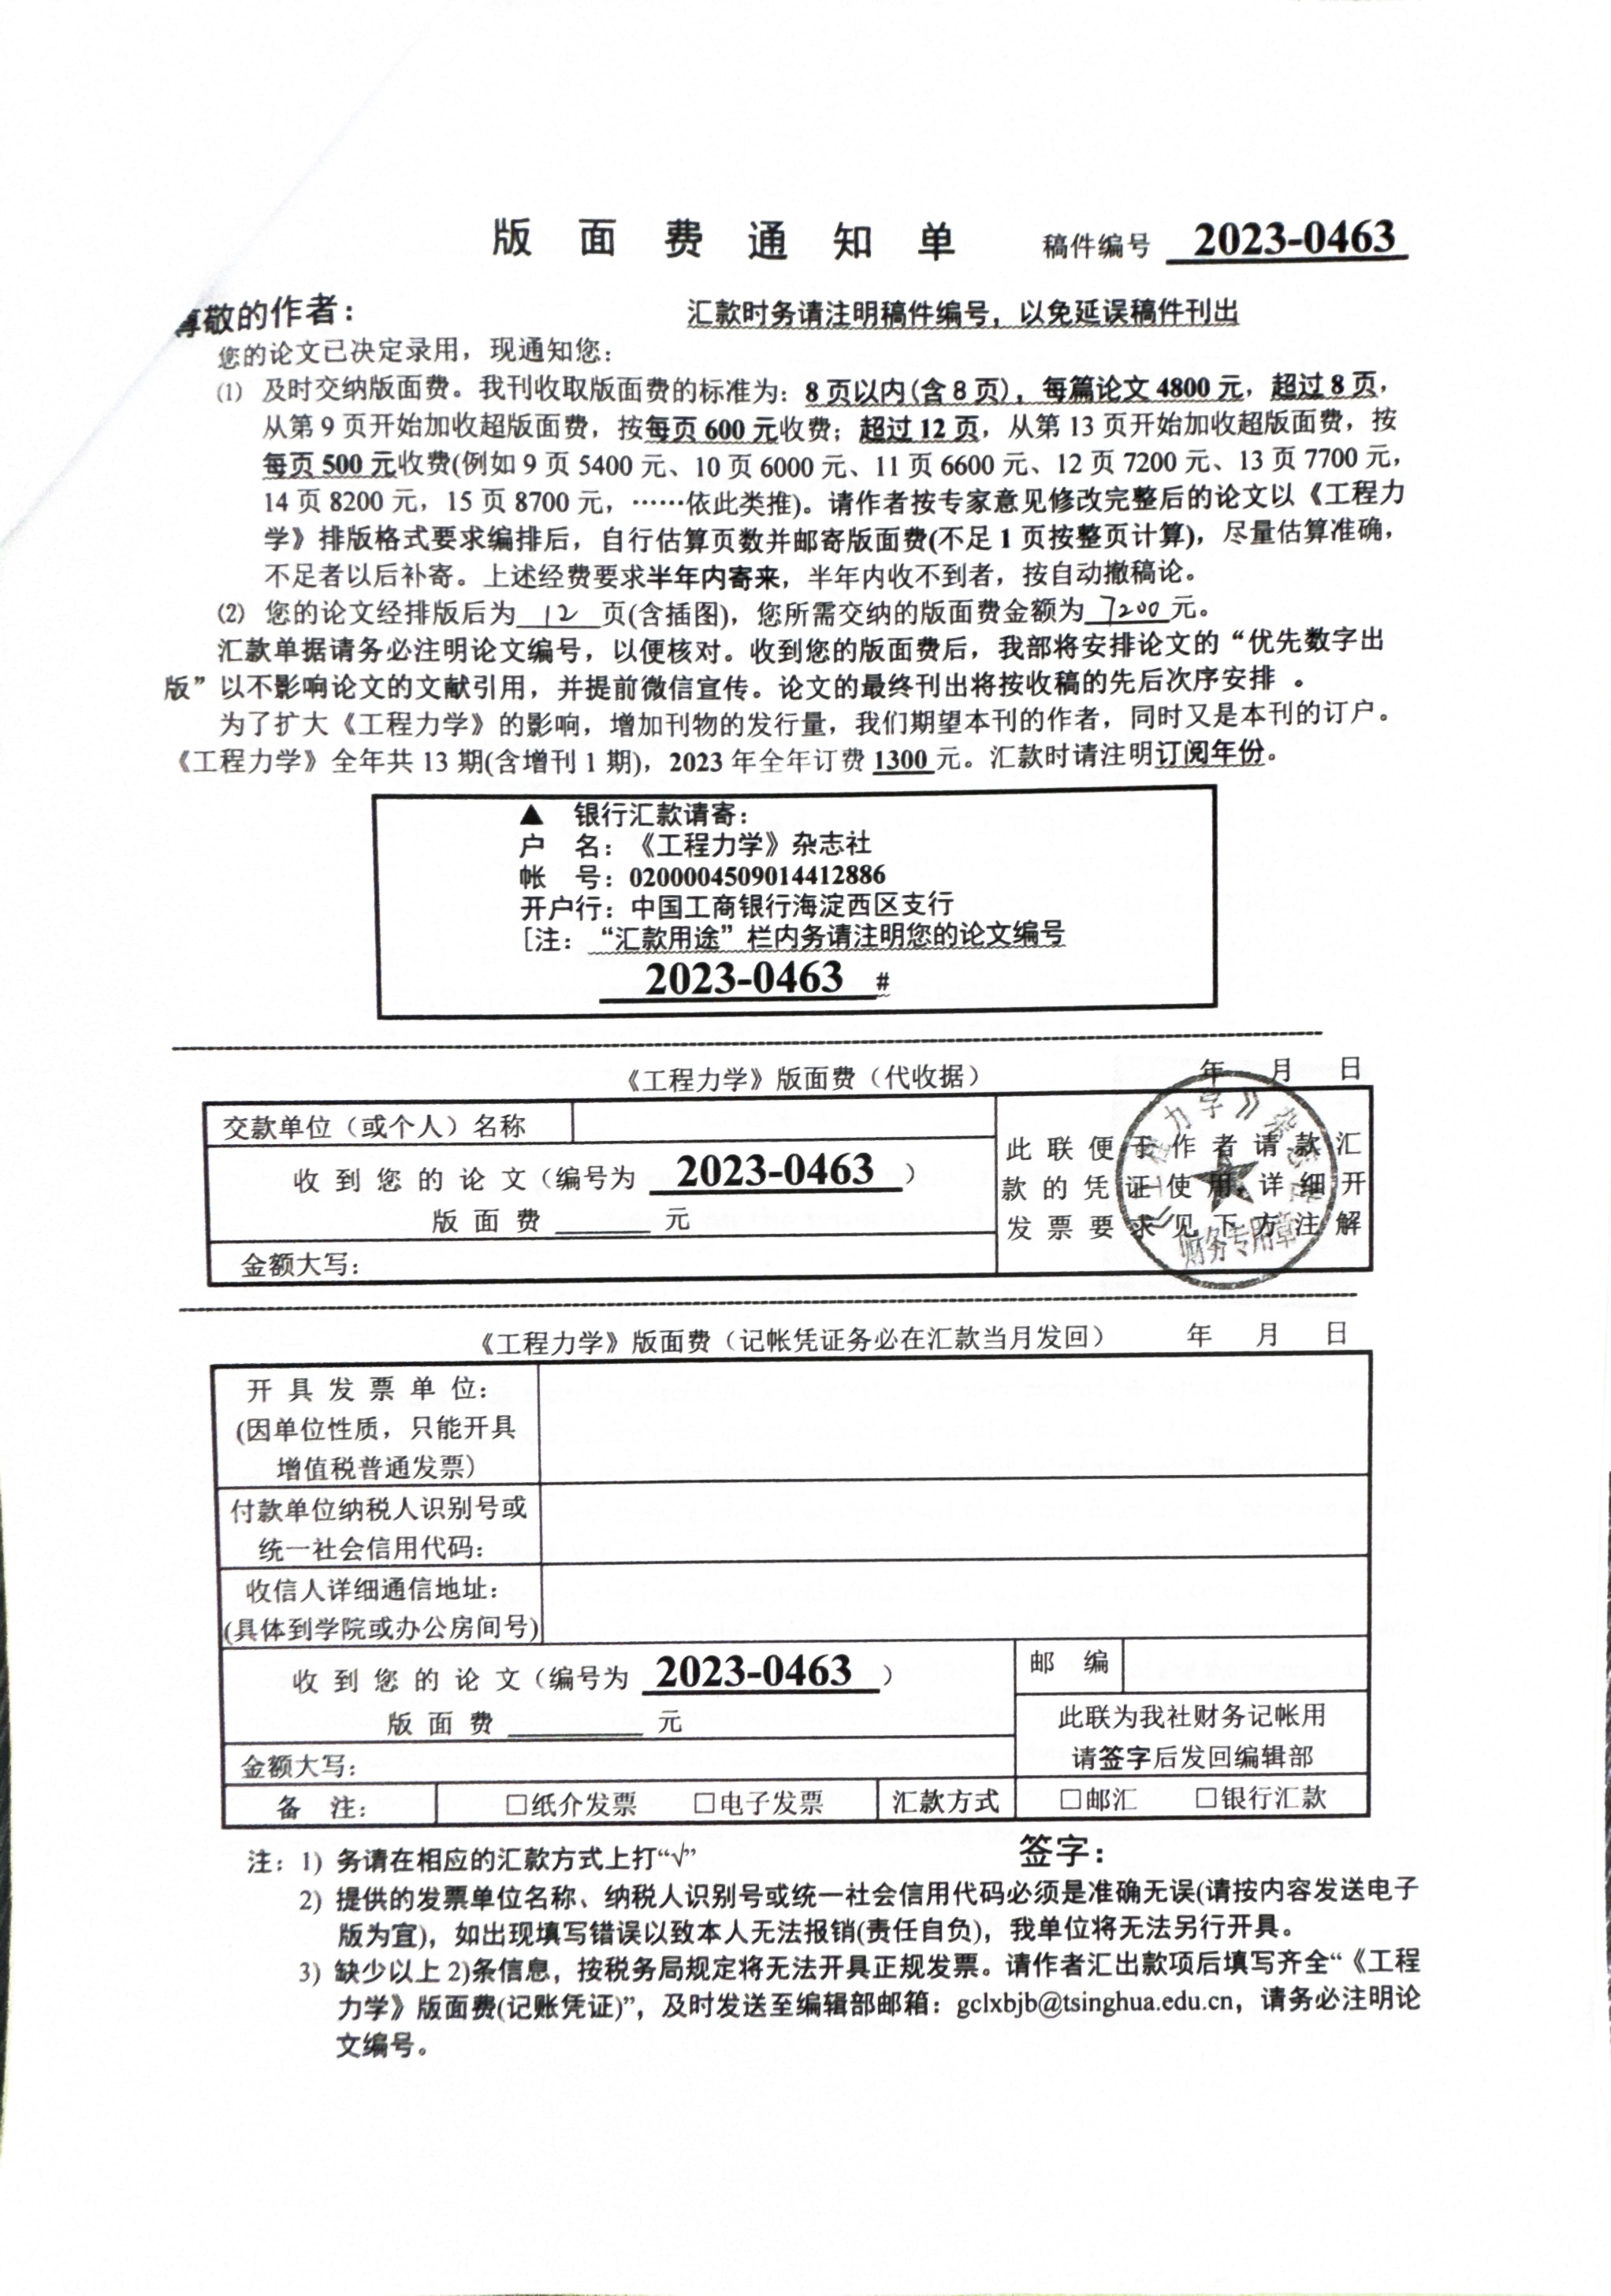 版 面 费 通 知 单 稿件编号 2023-0463
尊敬的作者： 汇款时务请注明稿件编号，以免延误稿件刊出
您的论文已决定录用，现通知您：
⑴ 及时交纳版面费。我刊收取版面费的标准为：8 页以内(含 8 页)，每篇论文 4800 元，超过 8 页，
从第 9 页开始加收超版面费，按每页 600 元收费；超过 12 页，从第 13 页开始加收超版面费，按
每页 500 元收费(例如 9 页 5400 元、10 页 6000 元、11 页 6600 元、12 页 7200 元、13 页 7700 元，
14 页 8200 元，15 页 8700 元，……依此类推)。请作者按专家意见修改完整后的论文以《工程力
学》排版格式要求编排后，自行估算页数并邮寄版面费(不足 1 页按整页计算)，尽量估算准确，
不足者以后补寄。上述经费要求半年内寄来，半年内收不到者，按自动撤稿论。
⑵ 您的论文经排版后为 12 页(含插图)，您所需交纳的版面费金额为 7200 元。
汇款单据请务必注明论文编号，以便核对。收到您的版面费后，我部将安排论文的“优先数字出
版”以不影响论文的文献引用，并提前微信宣传。论文的最终刊出将按收稿的先后次序安排 。
为了扩大《工程力学》的影响，增加刊物的发行量，我们期望本刊的作者，同时又是本刊的订户。
《工程力学》全年共 13 期(含增刊 1 期)，2023 年全年订费 1300 元。汇款时请注明订阅年份。
▲ 银行汇款请寄：
户 名：《工程力学》杂志社
帐 号：0200004509014412886
开户行：中国工商银行海淀西区支行
[注：“汇款用途”栏内务请注明您的论文编号
2023-0463 #
《工程力学》版面费（代收据） 年 月 日
交款单位（或个人）名称
收 到 您 的 论 文（编号为 2023-0463 ）
版 面 费 ______ 元
金额大写：
此 联 便 于 作 者 请 款 汇
款 的 凭 证 使 用，详 细 开
发 票 要 求 见 下 方 注 解
《工程力学》杂志社
财务专用章
《工程力学》版面费（记帐凭证务必在汇款当月发回） 年 月 日
开 具 发 票 单 位：
(因单位性质，只能开具
增值税普通发票)
付款单位纳税人识别号或
统一社会信用代码：
收信人详细通信地址：
(具体到学院或办公房间号)
收 到 您 的 论 文（编号为 2023-0463 ）
版 面 费 ______ 元
金额大写：
邮 编
此联为我社财务记帐用
请签字后发回编辑部
备 注： □纸介发票 □电子发票 汇款方式 □邮汇 □银行汇款
注：1) 务请在相应的汇款方式上打“√” 签字：
2) 提供的发票单位名称、纳税人识别号或统一社会信用代码必须是准确无误(请按内容发送电子
版为宜)，如出现填写错误以致本人无法报销(责任自负)，我单位将无法另行开具。
3) 缺少以上 2)条信息，按税务局规定将无法开具正规发票。请作者汇出款项后填写齐全“《工程
力学》版面费(记账凭证)”，及时发送至编辑部邮箱：gclxbjb@tsinghua.edu.cn，请务必注明论
文编号。